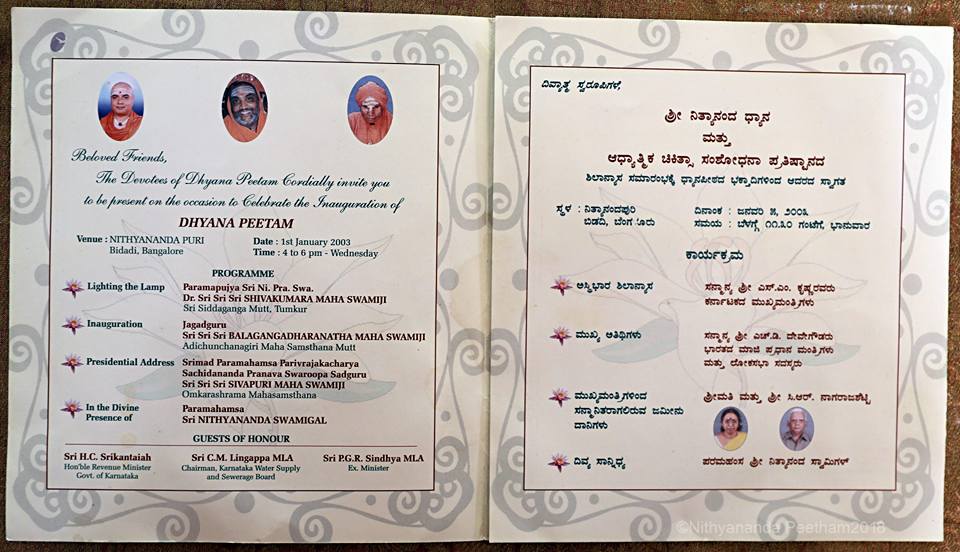 Beloved Friends,
The Devotees of Dhyana Peetam Cordially invite you
to be present on the occasion to Celebrate the Inauguration of
DHYANA PEETAM
Venue : NITHYANANDA PURI
Bidadi, Bangalore
Date : 1st January 2003
Time : 4 to 6 pm - Wednesday
PROGRAMME
Lighting the Lamp
Paramapujya Sri Ni. Pra. Swa.
Dr. Sri Sri Sri SHIVAKUMARA MAHA SWAMIJI
Sri Siddaganga Mutt, Tumkur
Inauguration
Jagadguru
Sri Sri Sri BALAGANGADHARANATHA MAHA SWAMIJI
Adichunchanagiri Maha Samsthana Mutt
Presidential Address
Srimad Paramahamsa Parivrajakacharya
Sachidananda Pranava Swaroopa Sadguru
Sri Sri Sri SIVAPURI MAHA SWAMIJI
Omkarashrama Mahasamsthana
In the Divine
Presence of
Paramahamsa
Sri NITHYANANDA SWAMIGAL
GUESTS OF HONOUR
Sri H.C. Srikantaiah
Hon'ble Revenue Minister
Govt. of Karnataka
Sri C.M. Lingappa MLA
Chairman, Karnataka Water Supply
and Sewerage Board
Sri P.G.R. Sindhya MLA
Ex. Minister
ದಿವ್ಯಾತ್ಮ ಸ್ವರೂಪಿಗಳೆ,
ಶ್ರೀ ನಿತ್ಯಾನಂದ ಧ್ಯಾನ
ಮತ್ತು
ಆಧ್ಯಾತ್ಮಿಕ ಚಿಕಿತ್ಸಾ ಸಂಶೋಧನಾ ಪ್ರತಿಷ್ಠಾನದ
ಶಿಲಾನ್ಯಾಸ ಸಮಾರಂಭಕ್ಕೆ ಧ್ಯಾನಪೀಠದ ಭಕ್ತಾದಿಗಳಿಂದ ಆದರದ ಸ್ವಾಗತ
ಸ್ಥಳ : ನಿತ್ಯಾನಂದಪುರಿ
ಬಿಡದಿ, ಬೆಂಗಳೂರು
ದಿನಾಂಕ : ಜನವರಿ ೫, ೨೦೦೩
ಸಮಯ : ಬೆಳಗ್ಗೆ ೧೧.೩೦ ಗಂಟೆಗೆ, ಭಾನುವಾರ
ಕಾರ್ಯಕ್ರಮ
ಅಸ್ತಿಭಾರ ಶಿಲಾನ್ಯಾಸ
ಸನ್ಮಾನ್ಯ ಶ್ರೀ ಎಸ್.ಎಂ. ಕೃಷ್ಣರವರು
ಕರ್ನಾಟಕದ ಮುಖ್ಯಮಂತ್ರಿಗಳು
ಮುಖ್ಯ ಅತಿಥಿಗಳು
ಸನ್ಮಾನ್ಯ ಶ್ರೀ ಎಚ್.ಡಿ. ದೇವೇಗೌಡರು
ಭಾರತದ ಮಾಜಿ ಪ್ರಧಾನ ಮಂತ್ರಿಗಳು
ಮತ್ತು ಲೋಕಸಭಾ ಸದಸ್ಯರು
ಮುಖ್ಯಮಂತ್ರಿಗಳಿಂದ
ಸನ್ಮಾನಿತರಾಗಲಿರುವ ಜಮೀನು
ದಾನಿಗಳು
ಶ್ರೀಮತಿ ಮತ್ತು ಶ್ರೀ ಸಿ.ಆರ್. ನಾಗರಾಜಶೆಟ್ಟಿ
ದಿವ್ಯ ಸಾನ್ನಿಧ್ಯ
ಪರಮಹಂಸ ಶ್ರೀ ನಿತ್ಯಾನಂದ ಸ್ವಾಮಿಗಳ್
©Nithyananda Peetham2018